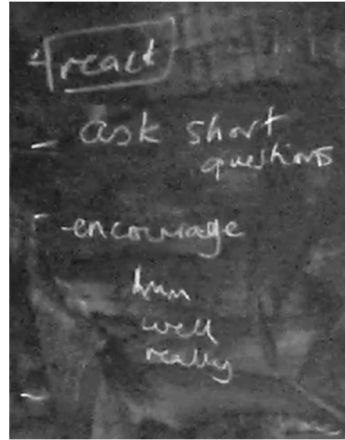 4 react
- ask short
questions
- encourage
hum
well
really
-